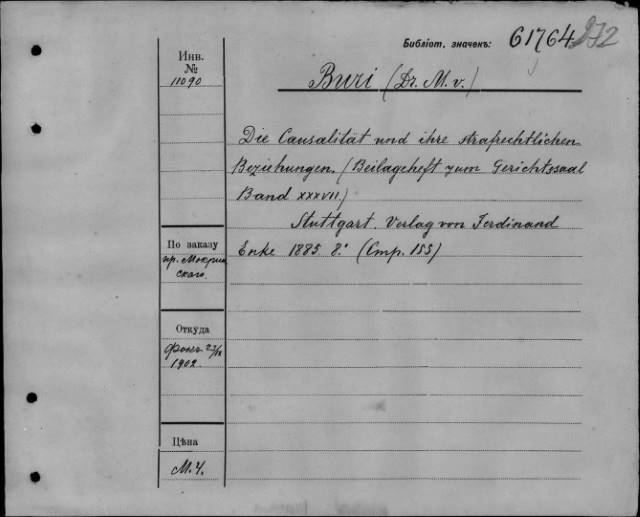 Библіот. значекъ: 61764 272
Инв.
№
11090
Buri (Dr. M. v.)
Die Causalität und ihre strafrechtlichen
Beziehungen. (Beilageheft zum Gerichtssaal
Band XXXVII)
Stuttgart. Verlag von Ferdinand
Enke 1885. 8.° (Стр. 155)
По заказу
пр. Мокрин
скаго.
Откуда
1902.
Цѣна
М. 4.